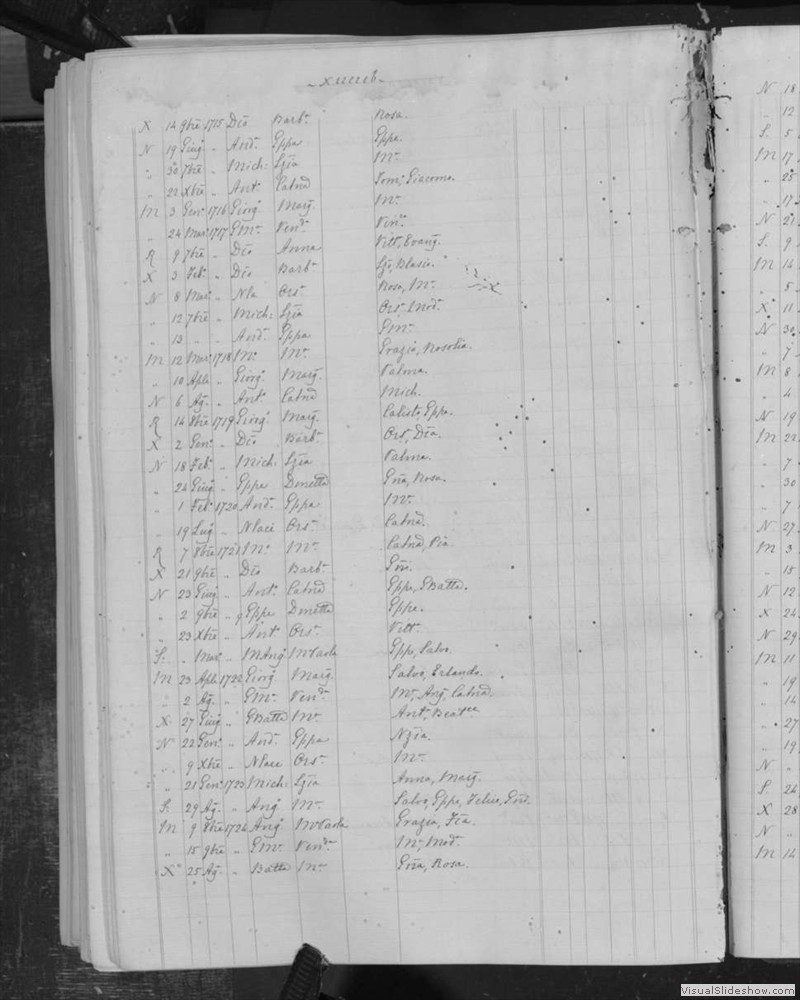 Xuereb
X 14 9bre 1715 Dio Barba Rosa.
N 19 Giug. " And. Gppa Gppa.
" 30 7bre " Mich: Gzia Ma
" 22 Xbre " Anto Catna Tom, Giacoma.
M 3 Geno 1716 Giorgo Marg. Ma
" 24 Mar. 1717 GMa Venda Vinc
R 9 7bre " Dio Anna Vitt, Evang.
X 3 Feb. " Dio Barba Blasio.
N 8 Mar. " Nla Orsa Rosa, Ma
" 12 7bre " Mich: Gzia Orsa, Moda
" 13 " " And. Gppa GMa
M 12 Mar. 1718 Ma Grazia, Rosolia.
" 10 Aple " Giorgo Marg. Palma.
N 6 Ag. " Anto Catna Mich.
R 14 8bre 1719 Giorgo Marg. Calisto, Gppa.
X 2 Geno " Dio Barba Orsa, Dia.
N 18 Feb. " Mich: Gzia Palma.
" 24 Giug. " Gppe Dmetta Gna, Rosa.
" 1 Feb. 1720 And. Gppa Ma
" 19 Lug. " Nlaci Orsa Catna.
R 7 8bre 1721 Ma Catna, Pia
X 21 9bre " Dio Barba Gni.
N 23 Giug. " Anto Catna Gppe, GBatta.
" 2 9bre " Gppe Dmetta Gppe.
" 23 Xbre " Anto Orsa Vitt.
S. " Mar. " MAng. MaCarla Gppe, Salvo.
M 23 Aple 1722 Giorgo Marg. Salvo, Erlando.
" 2 Ag. " GMa Venda Ma, Ang, Catna.
X 27 Giug. " GBatta Ma Anto, Beatce
N 22 Geno " And. Gppa Nzia.
" 9 Xbre " Nlace Orsa Ma
" 21 Geno 1723 Mich: Gzia Anna, Marg.
S. 29 Ag. " Ango Ma Salvo, Gppe, Felice,
M 9 8bre 1724 Ango MaCarla Grazia,
" 15 9bre " GMa Venda Ma, Moda
X 25 Ag. " Batta Ma Gna, Rosa.
N 18
" 12
S. 5
M 17
" 25
" 17
N 21
S. 9
M 14
" 5
X 11
N 30
" 7
M 8
" 4
N 19
M 22
" 7
" 30
" 7
N 27
M 3
" 15
N 12
X 24
N 29
M 11
" 19
" 14
" 27
" 19
N "
S. 24
X 28
N "
M 14
VisualSlideshow.com